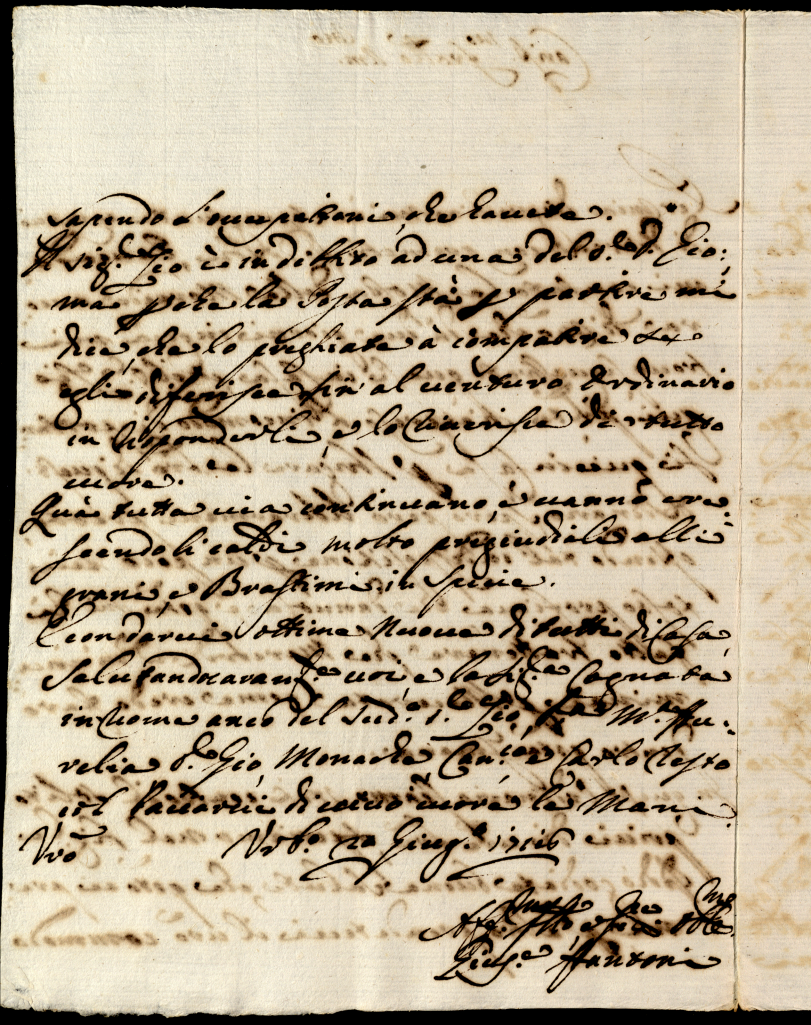 sapendo l'occupationi, che havete.
Il Sig.r Zio è in debito ad una del S.r D. Gio:
ma p che la Posta stà p partire mi
dice, che lo preghiate à compatire se
egli diferisce sin al venturo Ordinario
in risponderle, e lo riverisce di tutto
cuore.
Quà tutta via continuano, e vanno cre
scendo li caldi molto pregiudiciali alli
grani, e Brastimi in specie.
E con darvi ottime Nuove di tutti di Casa,
Salutando voi e la Sig.ra Cognata
in Nome anco del Sud.o S.r Zio, M.re Au-
relia S.r Gio, Monache Can.co e Carlo resto
col baciarvi di vivo cuore le Mani.
Vrō Urb.o 20 Giug.o 1716
Aff.mo
Giuse.e Fantoni